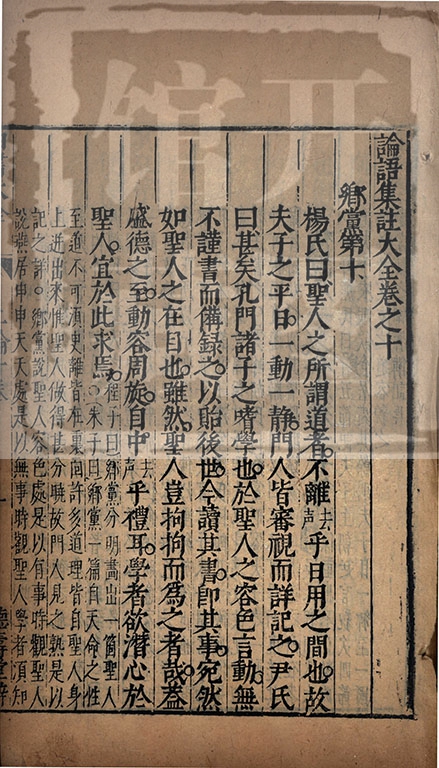 論語集註大全卷之十
鄉黨第十
楊氏曰聖人之所謂道者不離去聲乎日用之間也故
夫子之平日一動一靜門人皆審視而詳記之尹氏
曰甚矣孔門諸子之嗜學也於聖人之容色言動無
不謹書而備錄之以貽後世今讀其書即其事宛然
如聖人之在目也雖然聖人豈拘拘而為之者哉蓋
盛德之至動容周旋自中去聲乎禮耳學者欲潛心於
聖人宜於此求焉
程子曰鄉黨分明畫出一箇聖人
○朱子曰鄉黨一篇自天命之性
至道不可須臾離皆在裏面許多道理皆自聖人身
上迸出來惟聖人做得甚分曉故門人見之熟是以
記之詳○鄉黨說聖人容色處是以有事時觀聖人
說燕居申申夭夭處是以無事時觀聖人學者須知
德壽堂梓